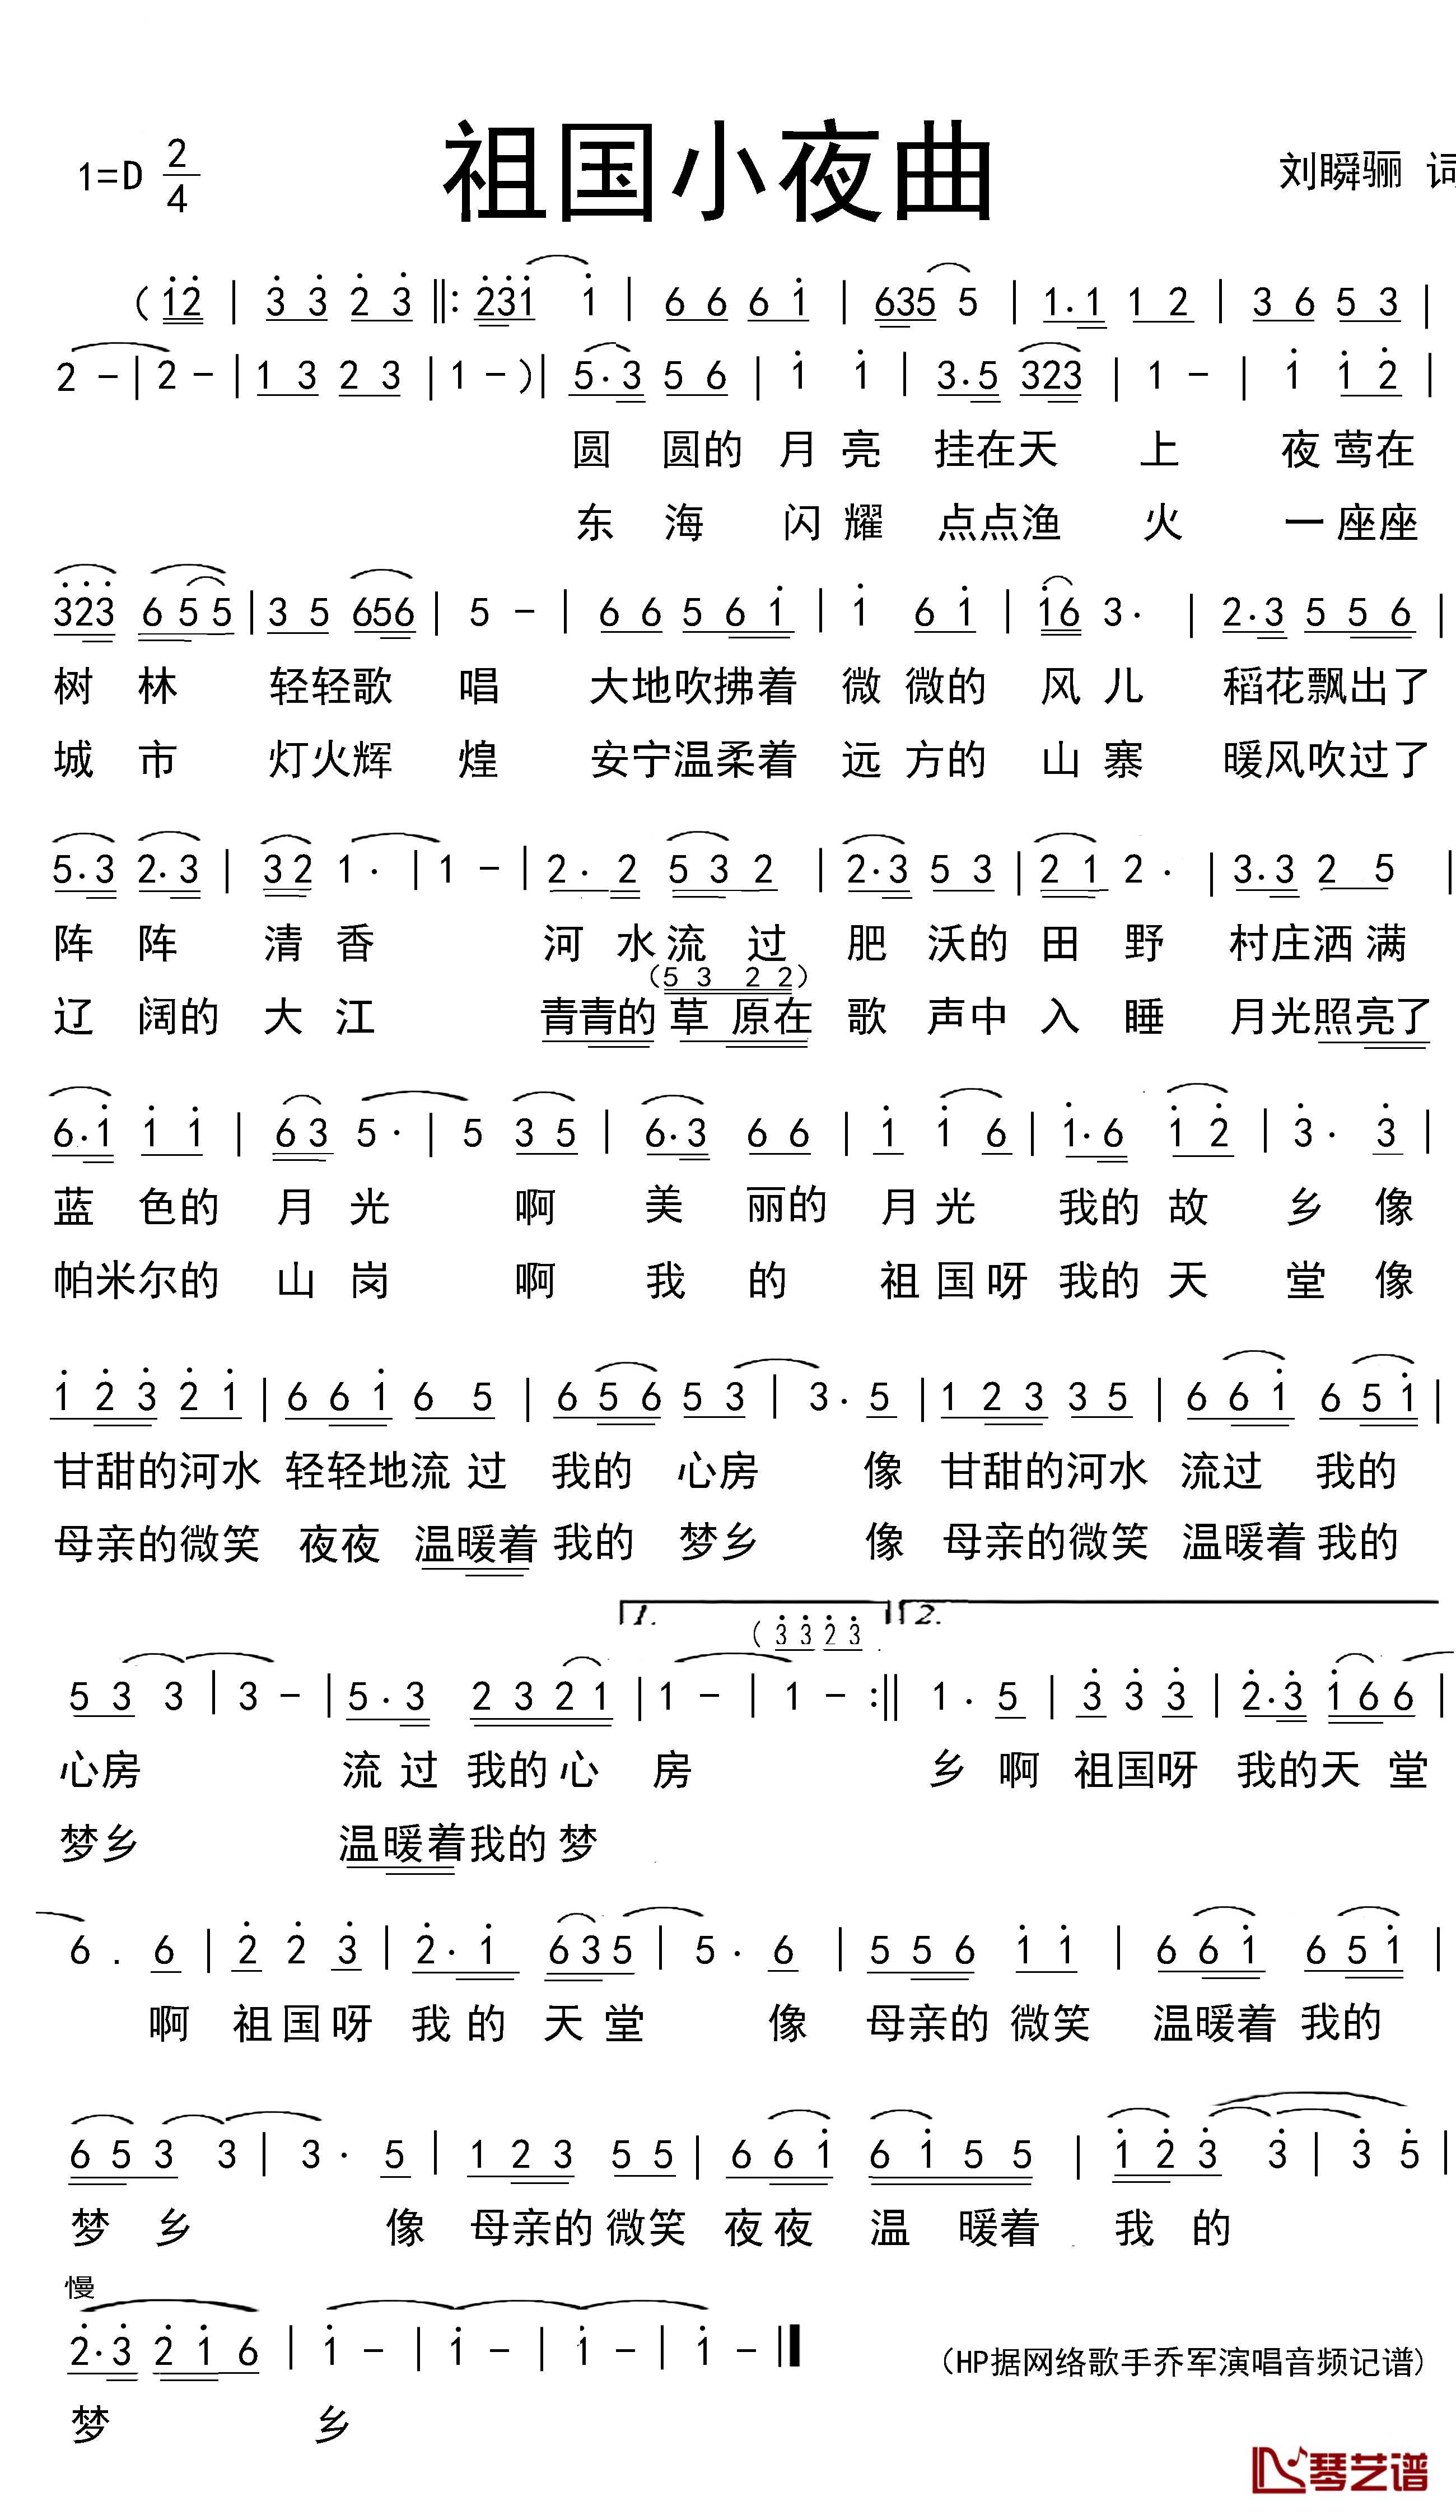 祖国小夜曲
1=D 2/4
刘瞬骊 词
( 1 2 | 3 3 2 3 ‖: 2 3 1 1 | 6 6 6 1 | 6 3 5 5 | 1. 1 1 2 | 3 6 5 3 |
2 - | 2 - | 1 3 2 3 | 1 - ) | 5. 3 5 6 | 1 1 | 3. 5 3 2 3 | 1 - | 1 1 2 |
圆 圆的 月 亮 挂在天 上 夜 莺在
东 海 闪 耀 点点渔 火 一 座座
3 2 3 6 5 5 | 3 5 6 5 6 | 5 - | 6 6 5 6 1 | 1 6 1 | 1 6 3. | 2. 3 5 5 6 |
树 林 轻轻歌 唱 大地吹拂着 微 微的 风 儿 稻花飘出了
城 市 灯火辉 煌 安宁温柔着 远 方的 山 寨 暖风吹过了
5. 3 2. 3 | 3 2 1. | 1 - | 2. 2 5 3 2 | 2. 3 5 3 | 2 1 2. | 3. 3 2 5 |
阵 阵 清 香 河 水 流 过 肥 沃的 田 野 村庄洒 满
(5 3 2 2)
辽 阔的 大 江 青青的 草 原在 歌 声中 入 睡 月光照亮了
6. 1 1 1 | 6 3 5. | 5 3 5 | 6. 3 6 6 | 1 1 6 | 1. 6 1 2 | 3. 3 |
蓝 色的 月 光 啊 美 丽的 月 光 我的 故 乡 像
帕米尔的 山 岗 啊 我 的 祖 国 呀 我的 天 堂 像
1 2 3 2 1 | 6 6 1 6 5 | 6 5 6 5 3 | 3. 5 | 1 2 3 3 5 | 6 6 1 6 5 1 |
甘甜的河水 轻轻地流 过 我的 心房 像 甘甜的河水 流过 我的
母亲的微笑 夜夜 温暖着 我的 梦乡 像 母亲的微笑 温暖着 我的
1. ( 3 3 2 3 2.
5 3 3 | 3 - | 5. 3 2 3 2 1 | 1 - | 1 - :‖ 1. 5 | 3 3 3 | 2. 3 1 6 6 |
心房 流 过 我的 心 房 乡 啊 祖国呀 我的天 堂
梦乡 温暖着我的 梦
6. 6 | 2 2 3 | 2. 1 6 3 5 | 5. 6 | 5 5 6 1 1 | 6 6 1 6 5 1 |
啊 祖 国 呀 我 的 天 堂 像 母亲的 微笑 温暖着 我的
6 5 3 3 | 3. 5 | 1 2 3 5 5 | 6 6 1 6 1 5 5 | 1 2 3 3 | 3 5 |
梦 乡 像 母亲的 微笑 夜 夜 温 暖着 我 的
慢
2. 3 2 1 6 | 1 - | 1 - | 1 - | 1 - ‖
(HP据网络歌手乔军演唱音频记谱)
梦 乡
琴艺谱